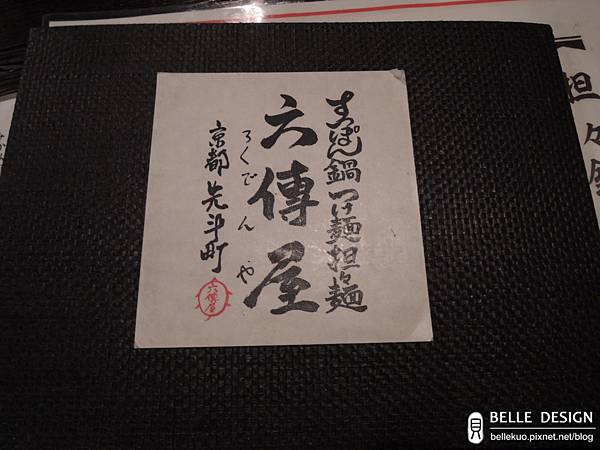 すっぽん鍋 つけ麺 担々麺
六傳屋
ろくでんや
京都 先斗町
六傳屋
担々
BELLE DESIGN
bellekuo.pixnet.net/blog